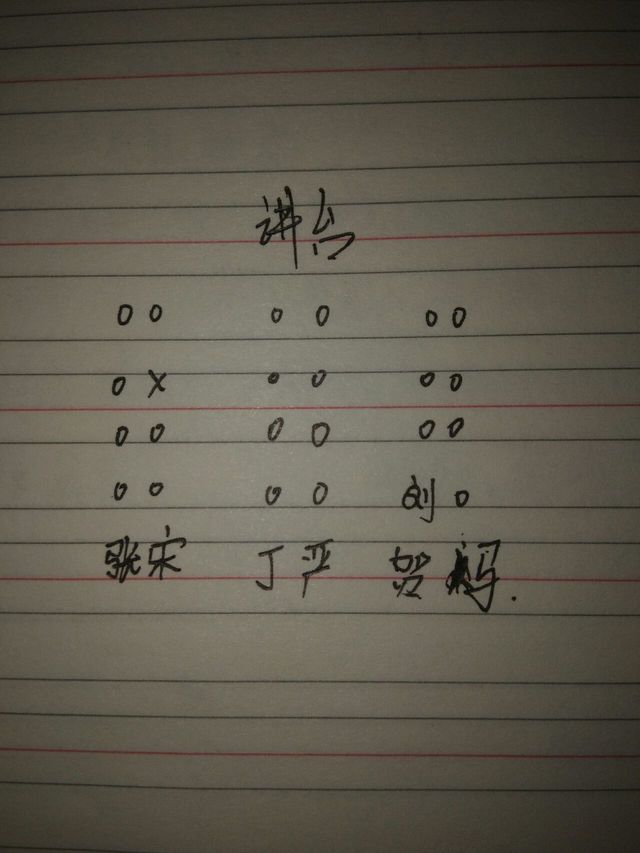 讲台
o o o o o o
o x o o o o
o o o o o o
o o o o 刘 o
张宋 丁严 贺冯.